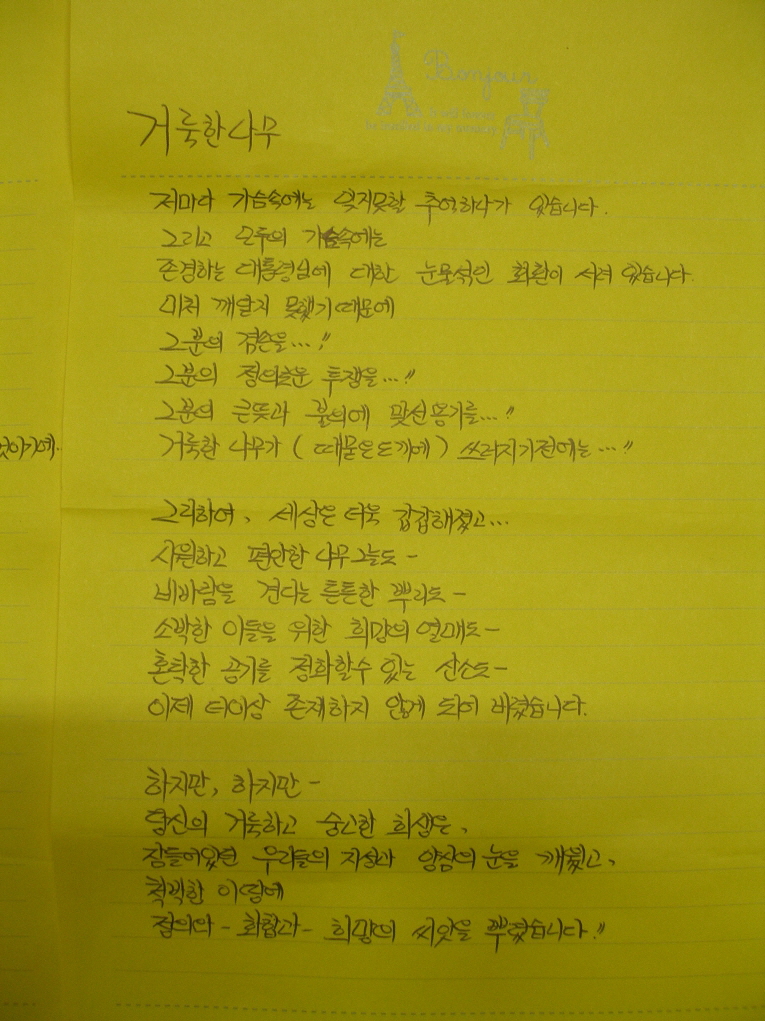 Bonjour
거룩한 나무
저마다 가슴속에는 잊지못할 추억하나가 있습니다.
그리고 모두의 가슴속에는
존경하는 대통령님에 대한 눈물석인 회환이 서려 있습니다.
미처 깨닫지 못했기때문에
그분의 겸손을...!!
그분의 정의로운 투쟁을...!!
그분의 큰뜻과 불의에 맞선용기를...!!
거룩한 나무가 (때묻은도끼에) 쓰러지기전에는...!!
그리하여, 세상은 더욱 갑갑해졌고...
시원하고 편안한 나무그늘도-
비바람을 견디는 튼튼한 뿌리도-
소박한 이들을 위한 희망의 열매도-
혼탁한 공기를 정화할수 있는 산소도-
이제 더이상 존재하지 않게 되어 버렸습니다.
하지만, 하지만-
당신의 거룩하고 숭고한 희생은,
잠들어있던 우리들의 지성과 양심의 눈을 깨웠고,
척박한 이땅에
정의와- 화합과- 희망의 씨앗을 뿌렸습니다!!